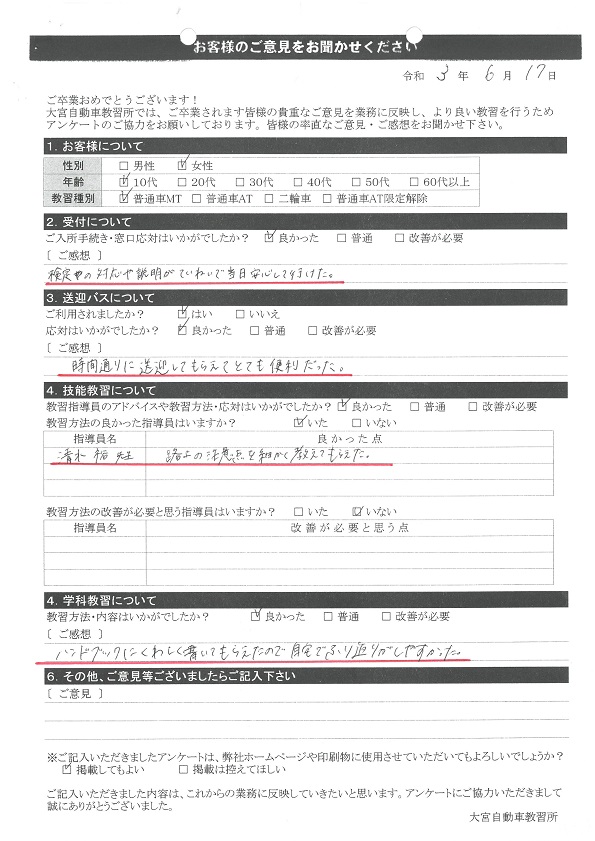 お客様のご意見をお聞かせください
令和 3 年 6 月 17 日
ご卒業おめでとうございます！
大宮自動車教習所では、ご卒業されます皆様の貴重なご意見を業務に反映し、より良い教習を行うため
アンケートのご協力をお願いしております。皆様の率直なご意見・ご感想をお聞かせ下さい。
1. お客様について
性別 □ 男性 ☑ 女性
年齢 ☑ 10代 □ 20代 □ 30代 □ 40代 □ 50代 □ 60代以上
教習種別 ☑ 普通車MT □ 普通車AT □ 二輪車 □ 普通車AT限定解除
2. 受付について
ご入所手続き・窓口応対はいかがでしたか？ ☑ 良かった □ 普通 □ 改善が必要
［ ご感想 ］
検定中の対応や説明がていねいで当日安心して行けた。
3. 送迎バスについて
ご利用されましたか？ ☑ はい □ いいえ
応対はいかがでしたか？ ☑ 良かった □ 普通 □ 改善が必要
［ ご感想 ］
時間通りに送迎してもらえてとても便利だった。
4. 技能教習について
教習指導員のアドバイスや教習方法・応対はいかがでしたか？ ☑ 良かった □ 普通 □ 改善が必要
教習方法の良かった指導員はいますか？ ☑ いた □ いない
指導員名 良かった点
清水 裕 先生 路上の注意点を細かく教えてもらえた。
教習方法の改善が必要と思う指導員はいますか？ □ いた ☑ いない
指導員名 改善が必要と思う点
4. 学科教習について
教習方法・内容はいかがでしたか？ ☑ 良かった □ 普通 □ 改善が必要
［ ご感想 ］
ハンドブックにくわしく書いてもらえたので自宅でふり返りがしやすかった。
6. その他、ご意見等ございましたらご記入下さい
［ ご意見 ］
※ご記入いただきましたアンケートは、弊社ホームページや印刷物に使用させていただいてもよろしいでしょうか？
☑ 掲載してもよい □ 掲載は控えてほしい
ご記入いただきました内容は、これからの業務に反映していきたいと思います。アンケートにご協力いただきまして
誠にありがとうございました。
大宮自動車教習所